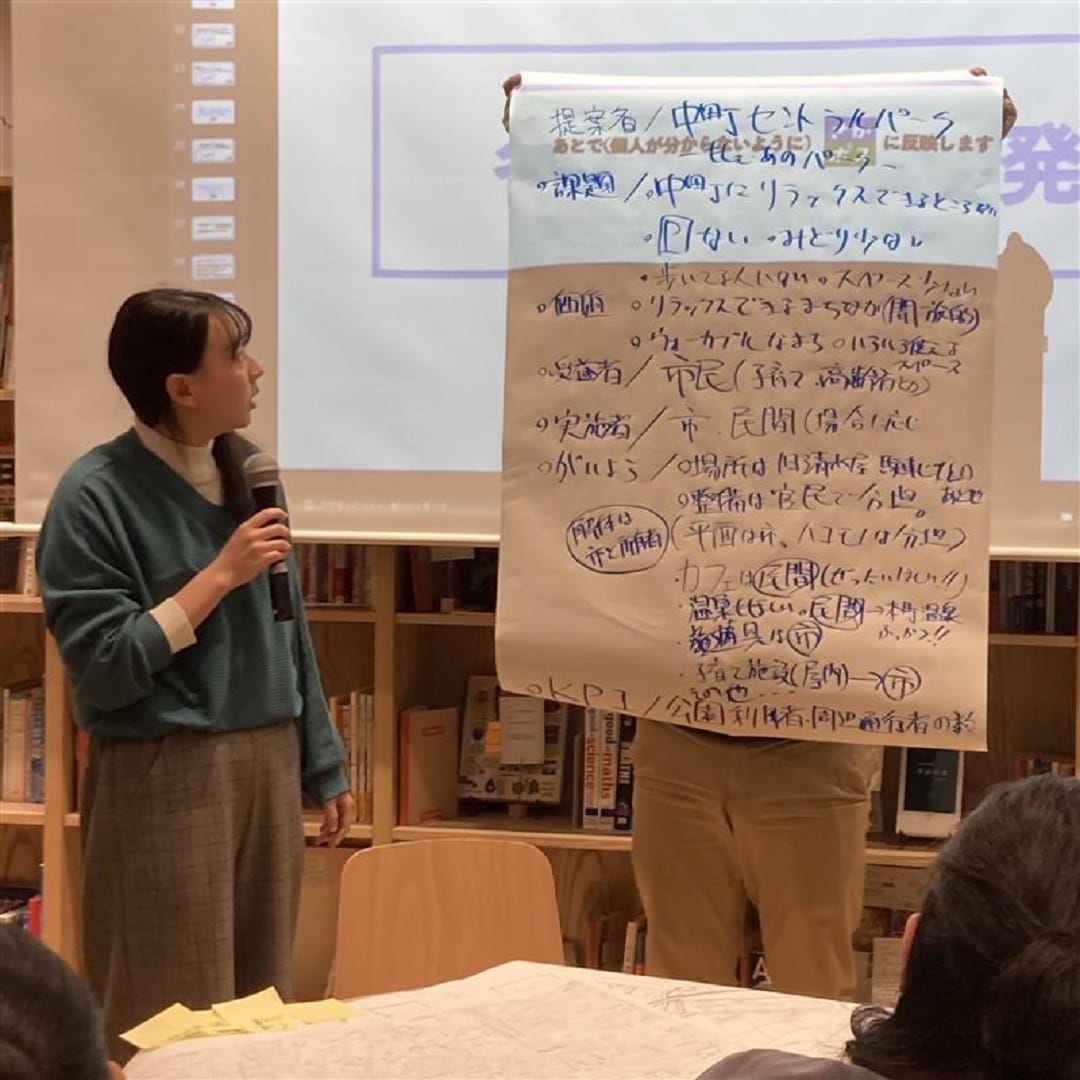 提案者/中町セントラルパーク
あとで(個人が分からないように) に反映します
発
課題/中町にリラックスできるところない
Pない みどり少ない
歩いてる人いない スペース少ない
価値 リラックスできるまちなか(開放的)
ウォーカブルなまち いろいろ使えるスペース
受益者/市民(子育て、高齢者との)
実施者/市、民間(場合に応じ
がいよう/場所は旧清水屋
整備は官民で分担。
解体は
市と所有者
(平面は市、ハコモノは分担)
カフェは民間(ぜったいほしい!!)
温泉もほしい。民間→ 温泉
ふっかつ!!
遊具は市
子育て施設(屋内)→市
その他…
KPI/公園利用者、周辺通行者の数
good
science
good
maths